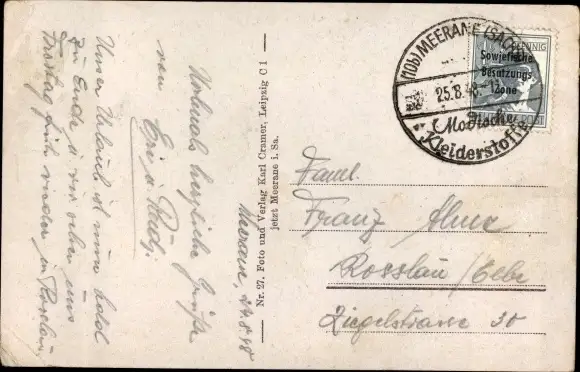 Unser Urlaub ist nun bald
zu Ende u. wir sehen uns
früh wieder in Rosslau.
Nochmals herzliche Grüße
von
Meerane, 24.8.48
Nr. 27. Foto und Verlag Karl Cramer, Leipzig C 1
jetzt Meerane i. Sa.
(10b) MEERANE (SACHS)
25.8.48
Modische
Kleiderstoffe
PFENNIG
Sowjetische
Besatzungs
Zone
POST
Faml.
Franz
Rosslau/Elbe
Ziegelstrasse 30